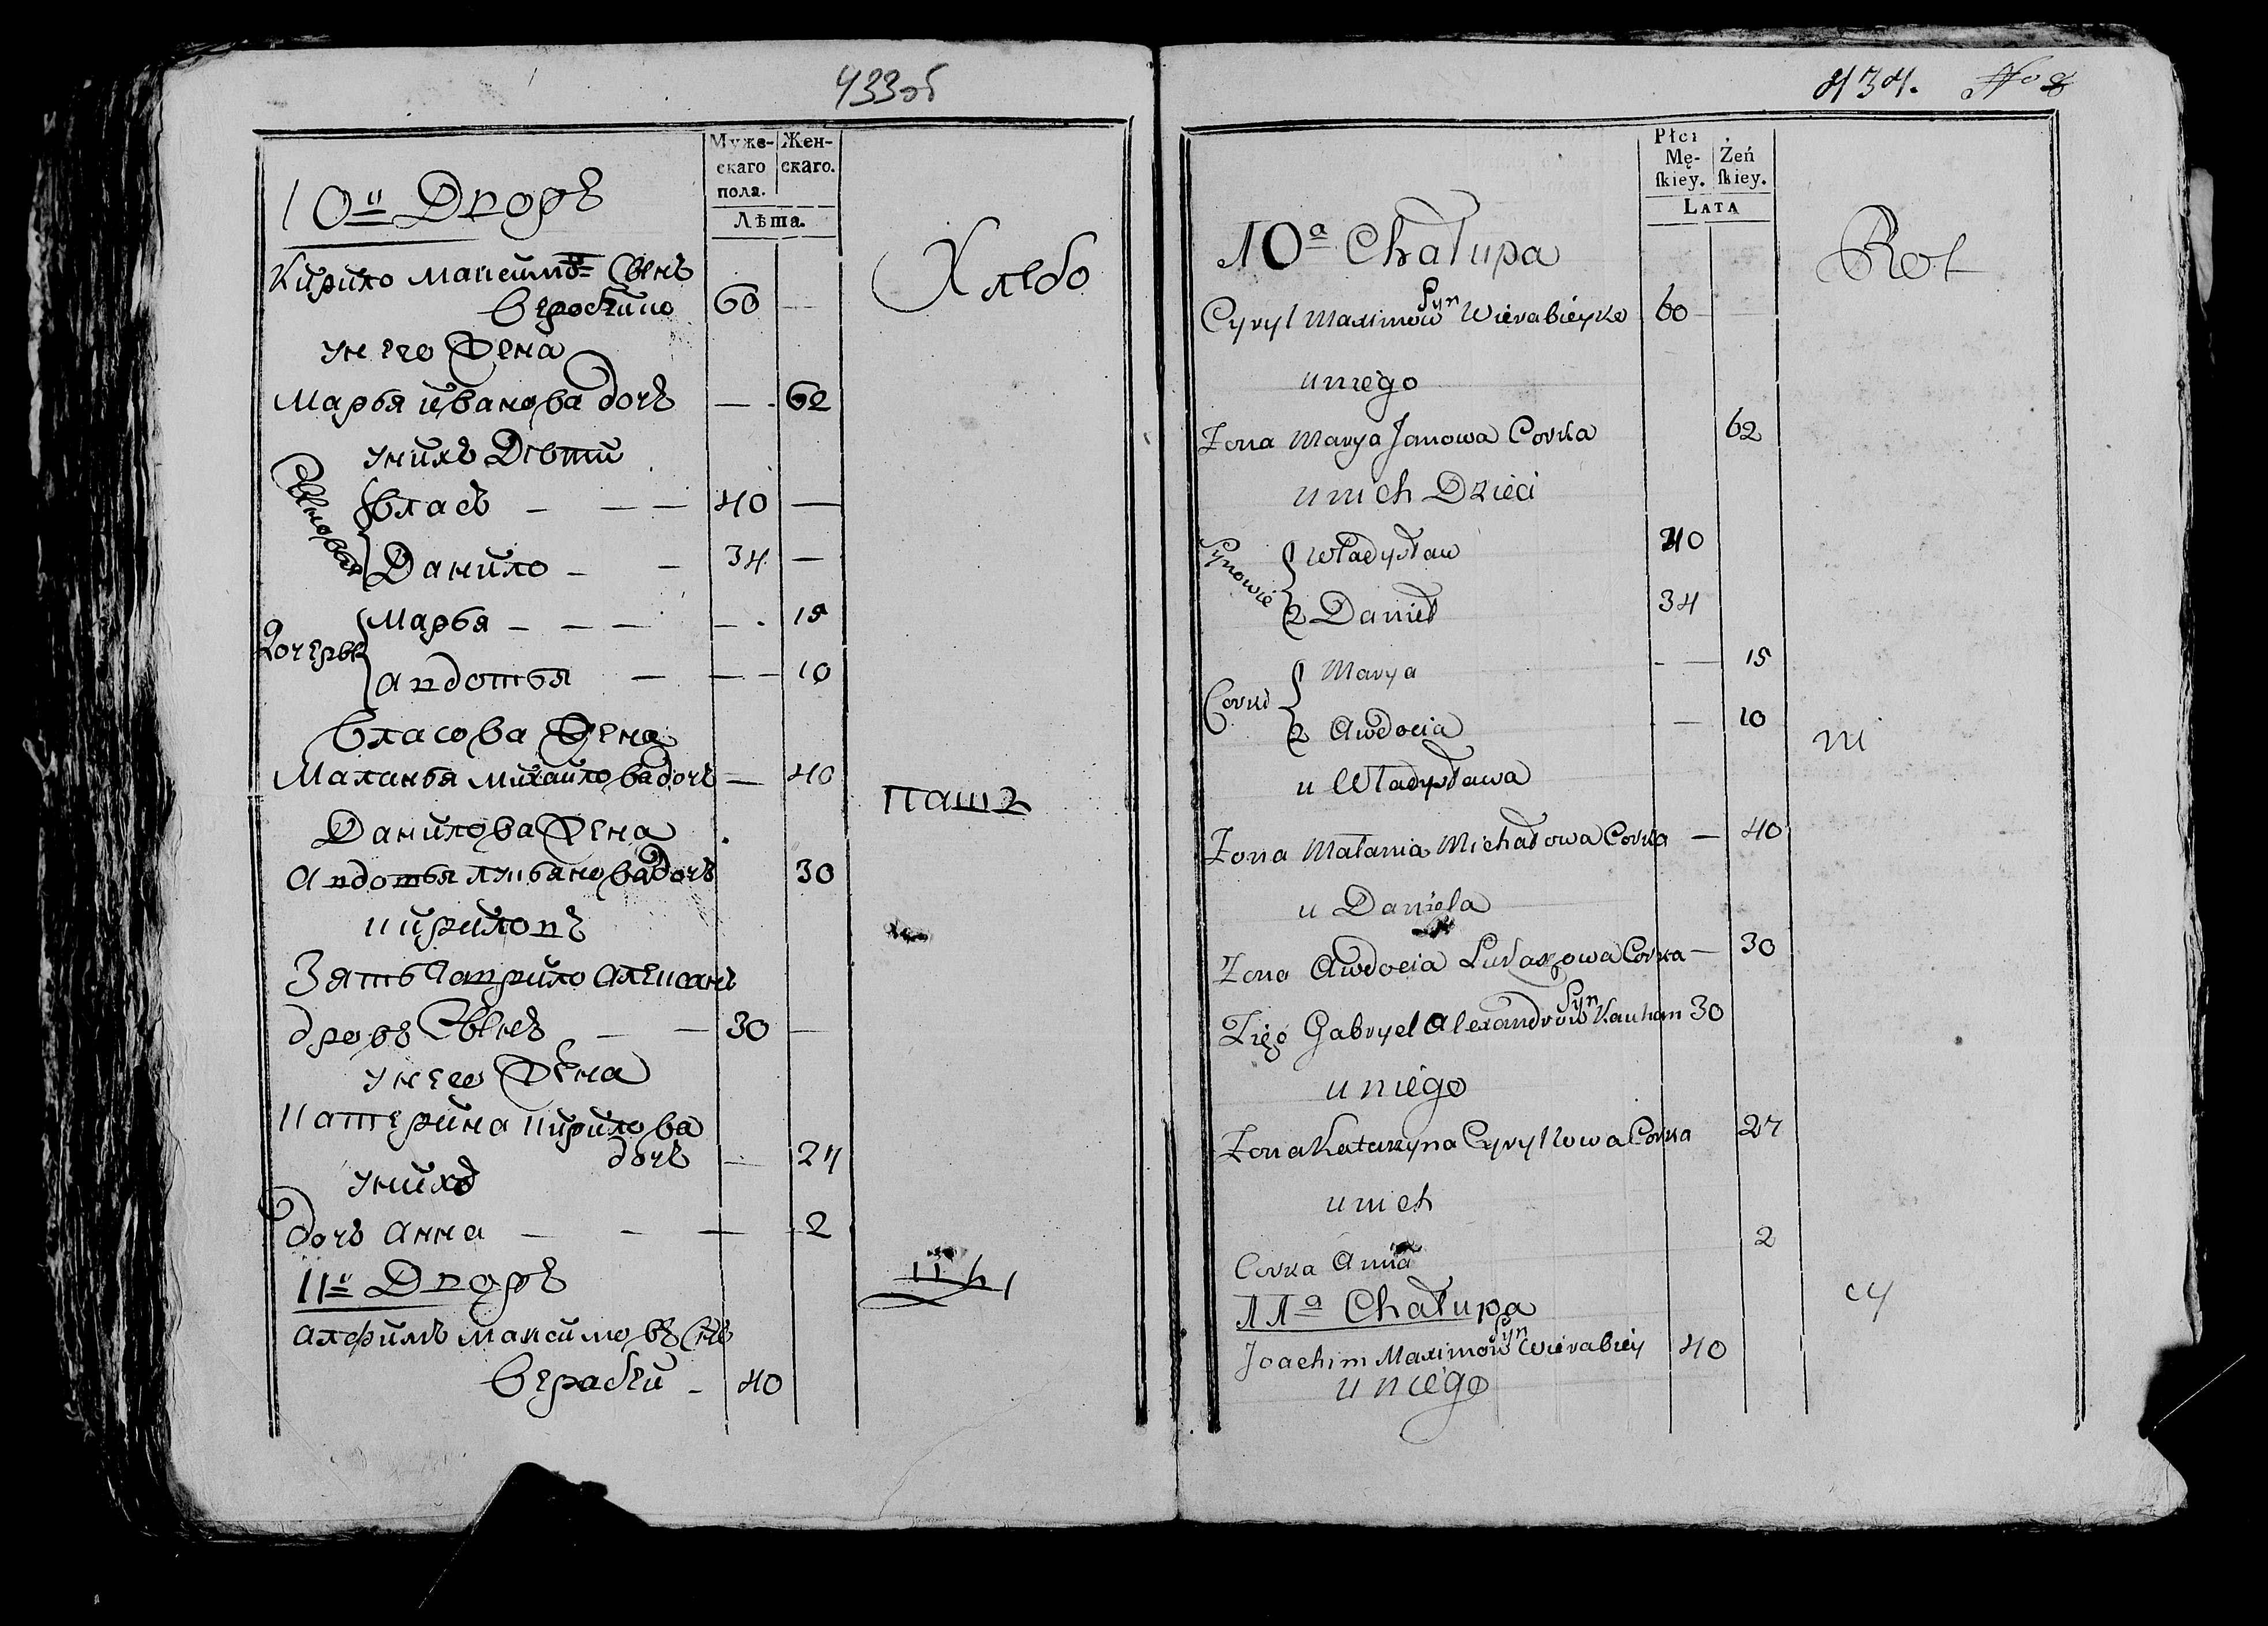 433об
Муже-
скаго
пола.
Жен-
скаго.
Лѣта.
10й Дворъ
Хлебо
Кирило Максимовъ Сынъ
Веробейко 60 —
у него Жена
Марья иванова дочь — 62
у нихъ Дѣти
Сыновья
Власъ — — — 40 —
Данило — — 34 —
Дочерьи
Марья — — — — 15
авдотья — — — 10
Власова Жена
Маланья михайлова дочь — 40
пашъ
Данилова Жена
Авдотья лукьянова дочь 30
кириловъ
Зять Гаврило Алексан
дровъ Сынъ — — 30 —
у него Жена
Катерина кирилова
дочь — 27
у нихъ
дочь Анна — — — 2
11й Дворъ
цы
Алфимъ максимовъ Сынъ
Верабей - 40
434. No 8
Płci
Mę-
skiey.
Żeń
skiey.
LATA
10a Chałupa
Rol
Cyryl Maximow Syn Wierabieyko 60
u niego
Zona Marya Janowa Corka 62
u nich Dzieci
Synowie
Władysław 40
2 Danieł 34
Corki
Marya - — 15
2 Awdocia — 10
ni
u Władysława
Zona Małania Michałowa Corka — 40
u Daniela
Zona Awdocia Łukaszowa Corka — 30
Zięć Gabryel Alexandrow Syn 30
u niego
Zona Katarzyna Cyryllowa Corka 27
u nich
Corka Anna 2
11a Chałupa
cy
Joachim Maximow Syn Wierabiey 40
u niego